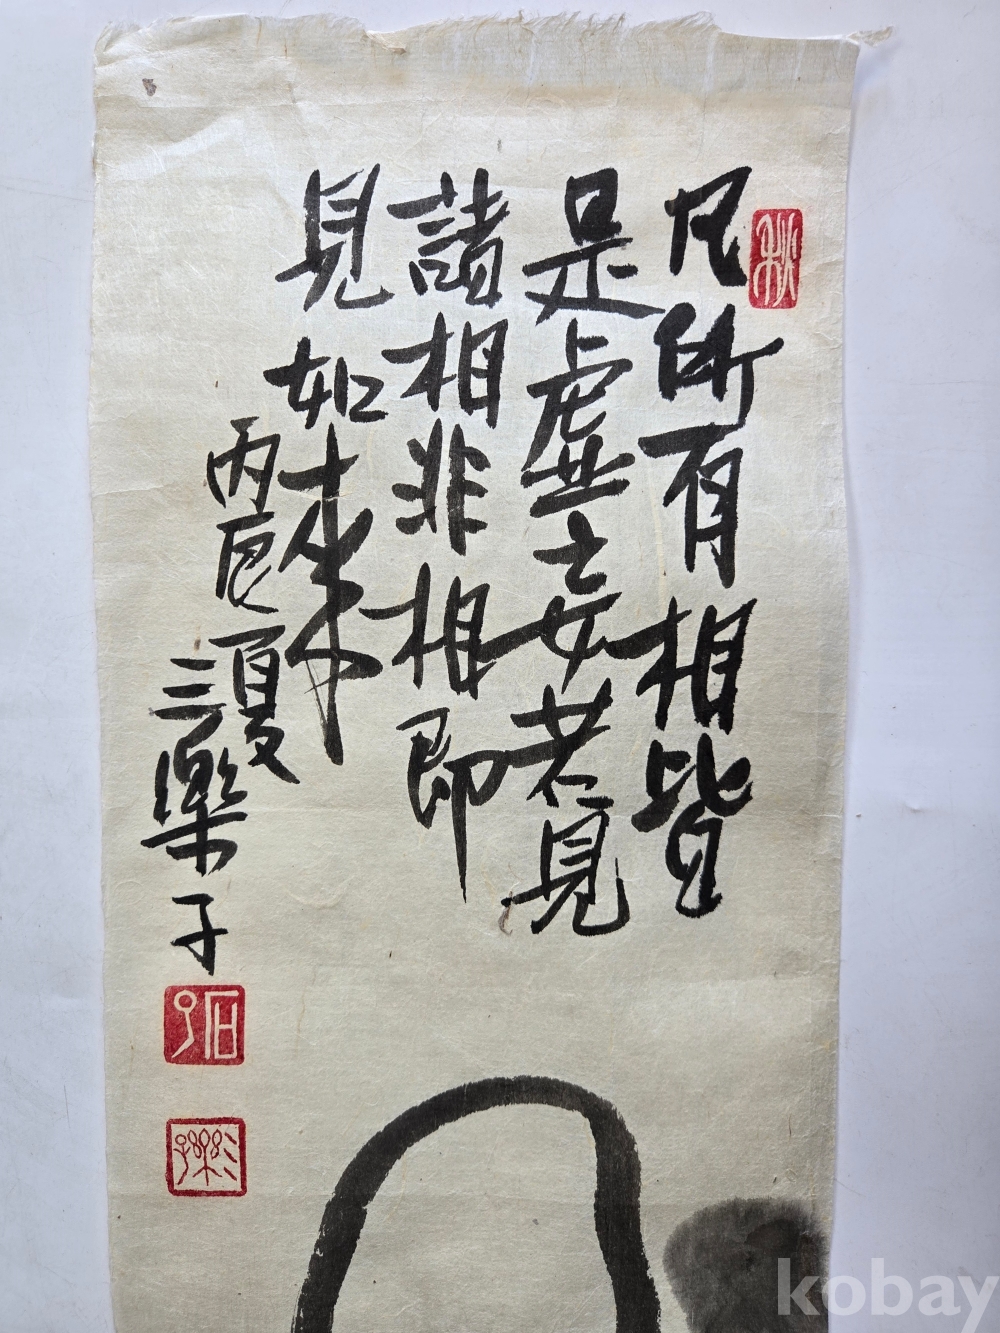 凡所有相皆
是虛妄若見
諸相非相即
見如来
丙辰夏
三樂子
秋
石子
三樂子
kobay